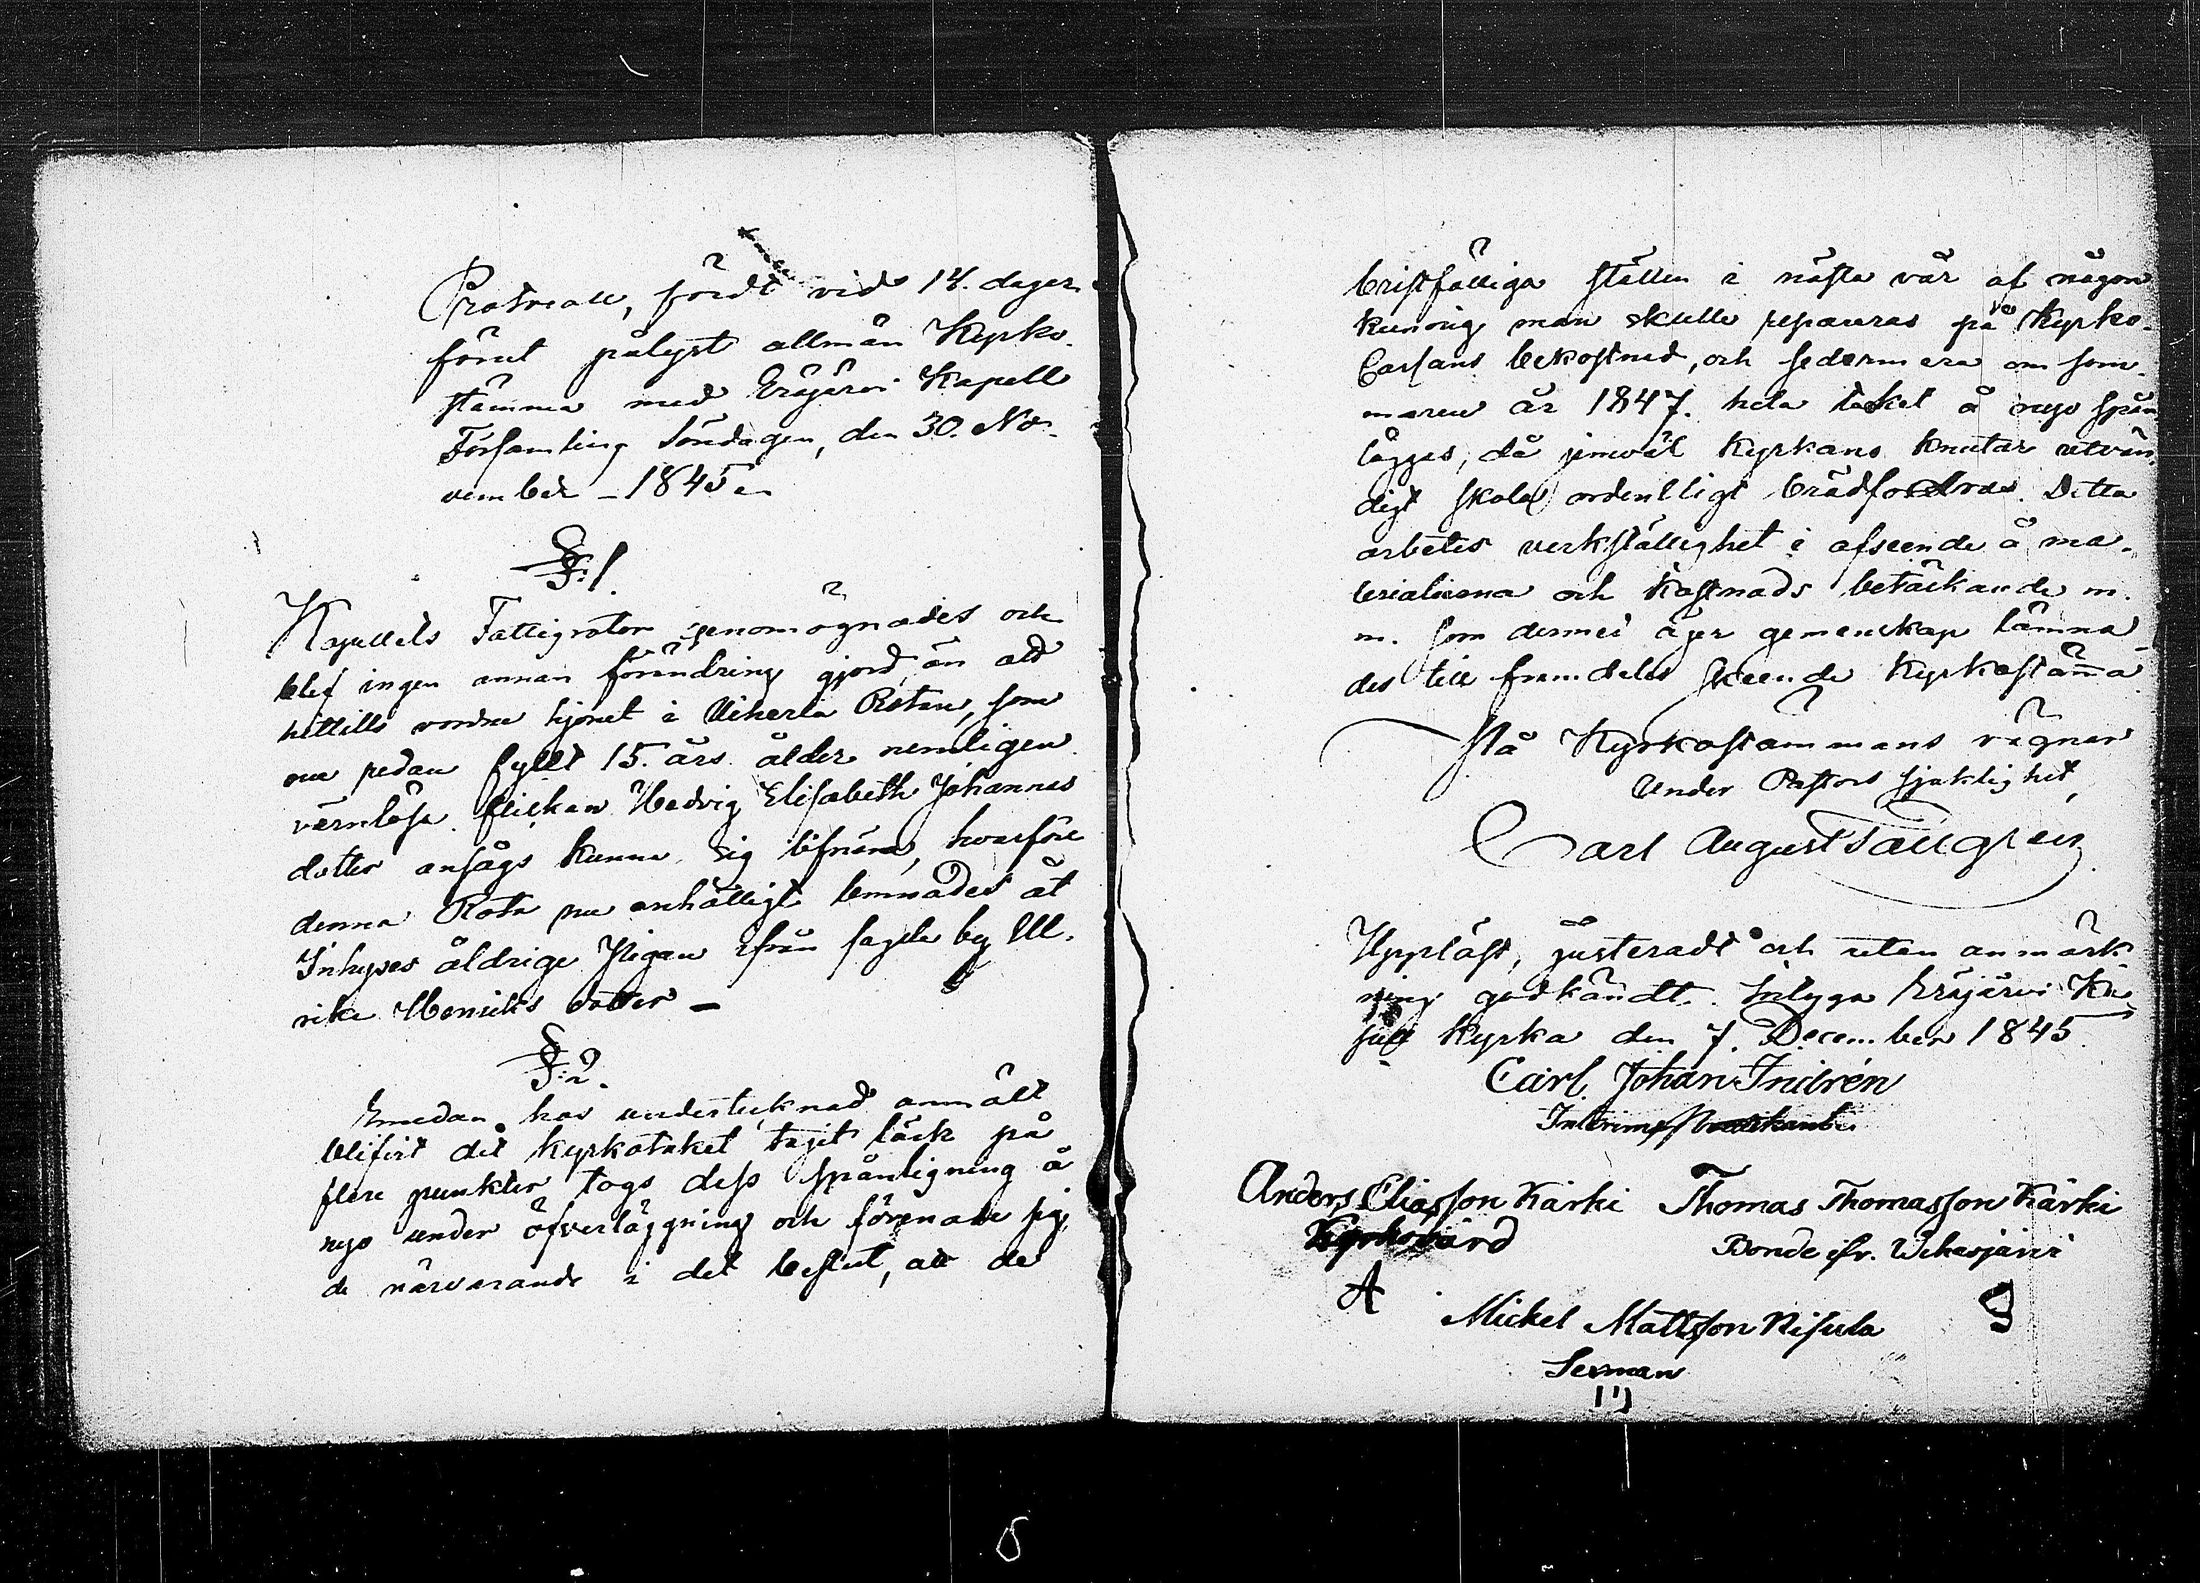 Protocoll, fördt vid 14. dagar
förut pålyst allmän Kyrko-
stämma med Eräjärvi Kapell
Församling Söndagen, den 30. No-
vember 1845
§:1.
Kapellets Fattigrotor genomögnades och
blef ingen annan förändring gjord, än att
hittills vordne hjonet i Uiherla Rotan, som
nu redan fyllt 15. års ålder nemligen
värnlösa flickan Hedvig Elisabeth Johannes
dotter ansågs kunna sig lifnära, hvarföre
denna Rota nu enhälligt lemnades åt
Inhyses åldrige Pigan ifrån sagde by Ul-
rika Henriks dotter –
§:2.
Emedan hos undertecknad anmält
blifvit det kyrkotaket tagit läck på
flere punkter togs dess spånläggning å
nyo under öfverläggning och förenade sig
de närvarande i det beslut, att de
bristfälliga ställen i nästa vår af någon
kunnig man skulle repareras på Kyrko-
Cassans bekostnad, och sedermera om som-
maren år 1847. hela taket å nyo spån
lägges, då jemväl Kyrkans knutar utvän-
digt skola ordentligt brädfodras. Detta
arbetes verkställighet i afseende å ma-
terialierna och kostnads betäckande m.
m. som dermed äger gemenskap lämna-
des till framdeles skeende Kyrkostämma
På Kyrkostämmans vägnar
Under Pastors sjuklighet,
Carl August Tallgren
Uppläst, justeradt och utan anmärk-
ning godkändt. Intyga Eräjärvi Ka-
pell Kyrka den 7. December 1845.
Carl Johan Indrén
Interims
Anders Eliasson Kärki Thomas Thomasson Kärki
Kyrkovärd Bonde ifr. Wihasjärvi
A
Mickel Mattsson Nisula
Sexman